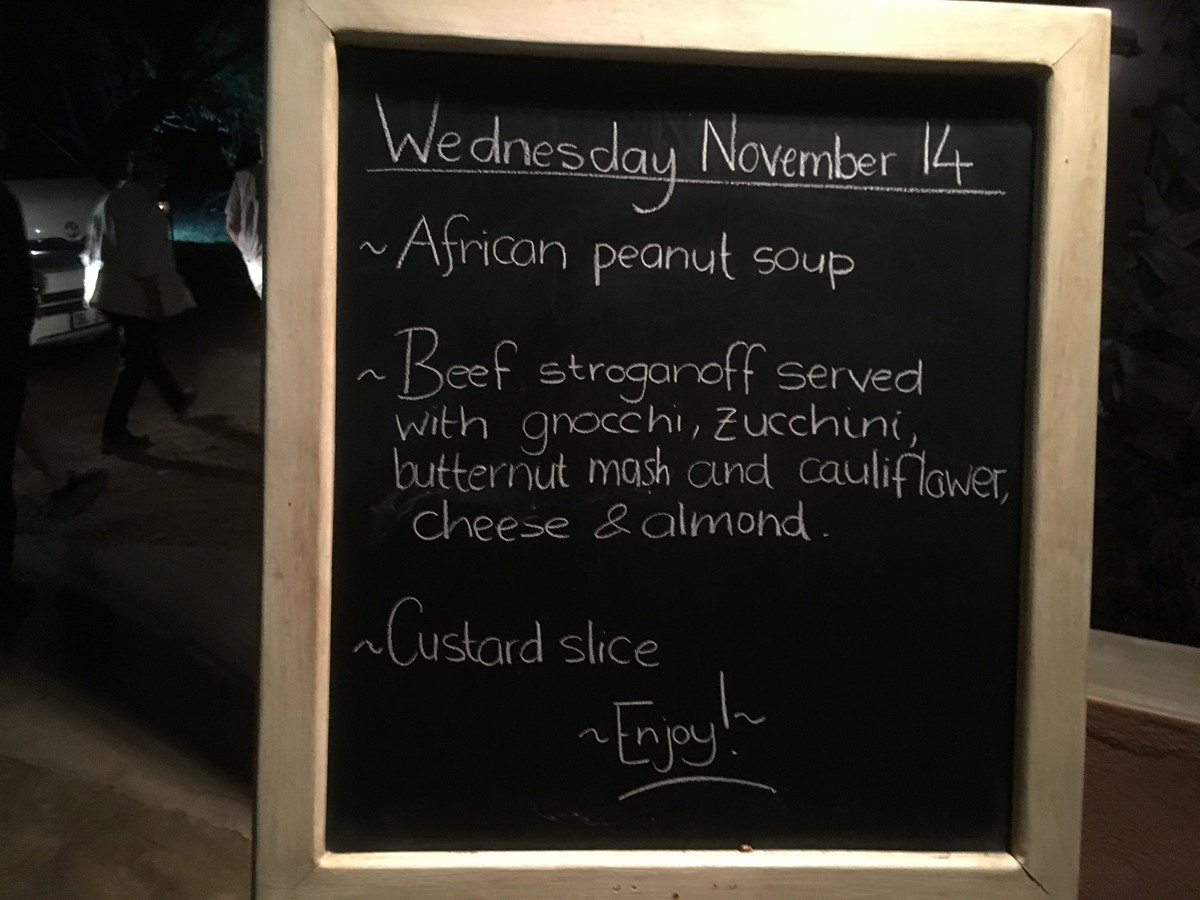 Wednesday November 14
~African peanut soup
~Beef stroganoff served
with gnocchi, zucchini,
butternut mash and cauliflower,
cheese & almond.
~Custard slice
~Enjoy!~